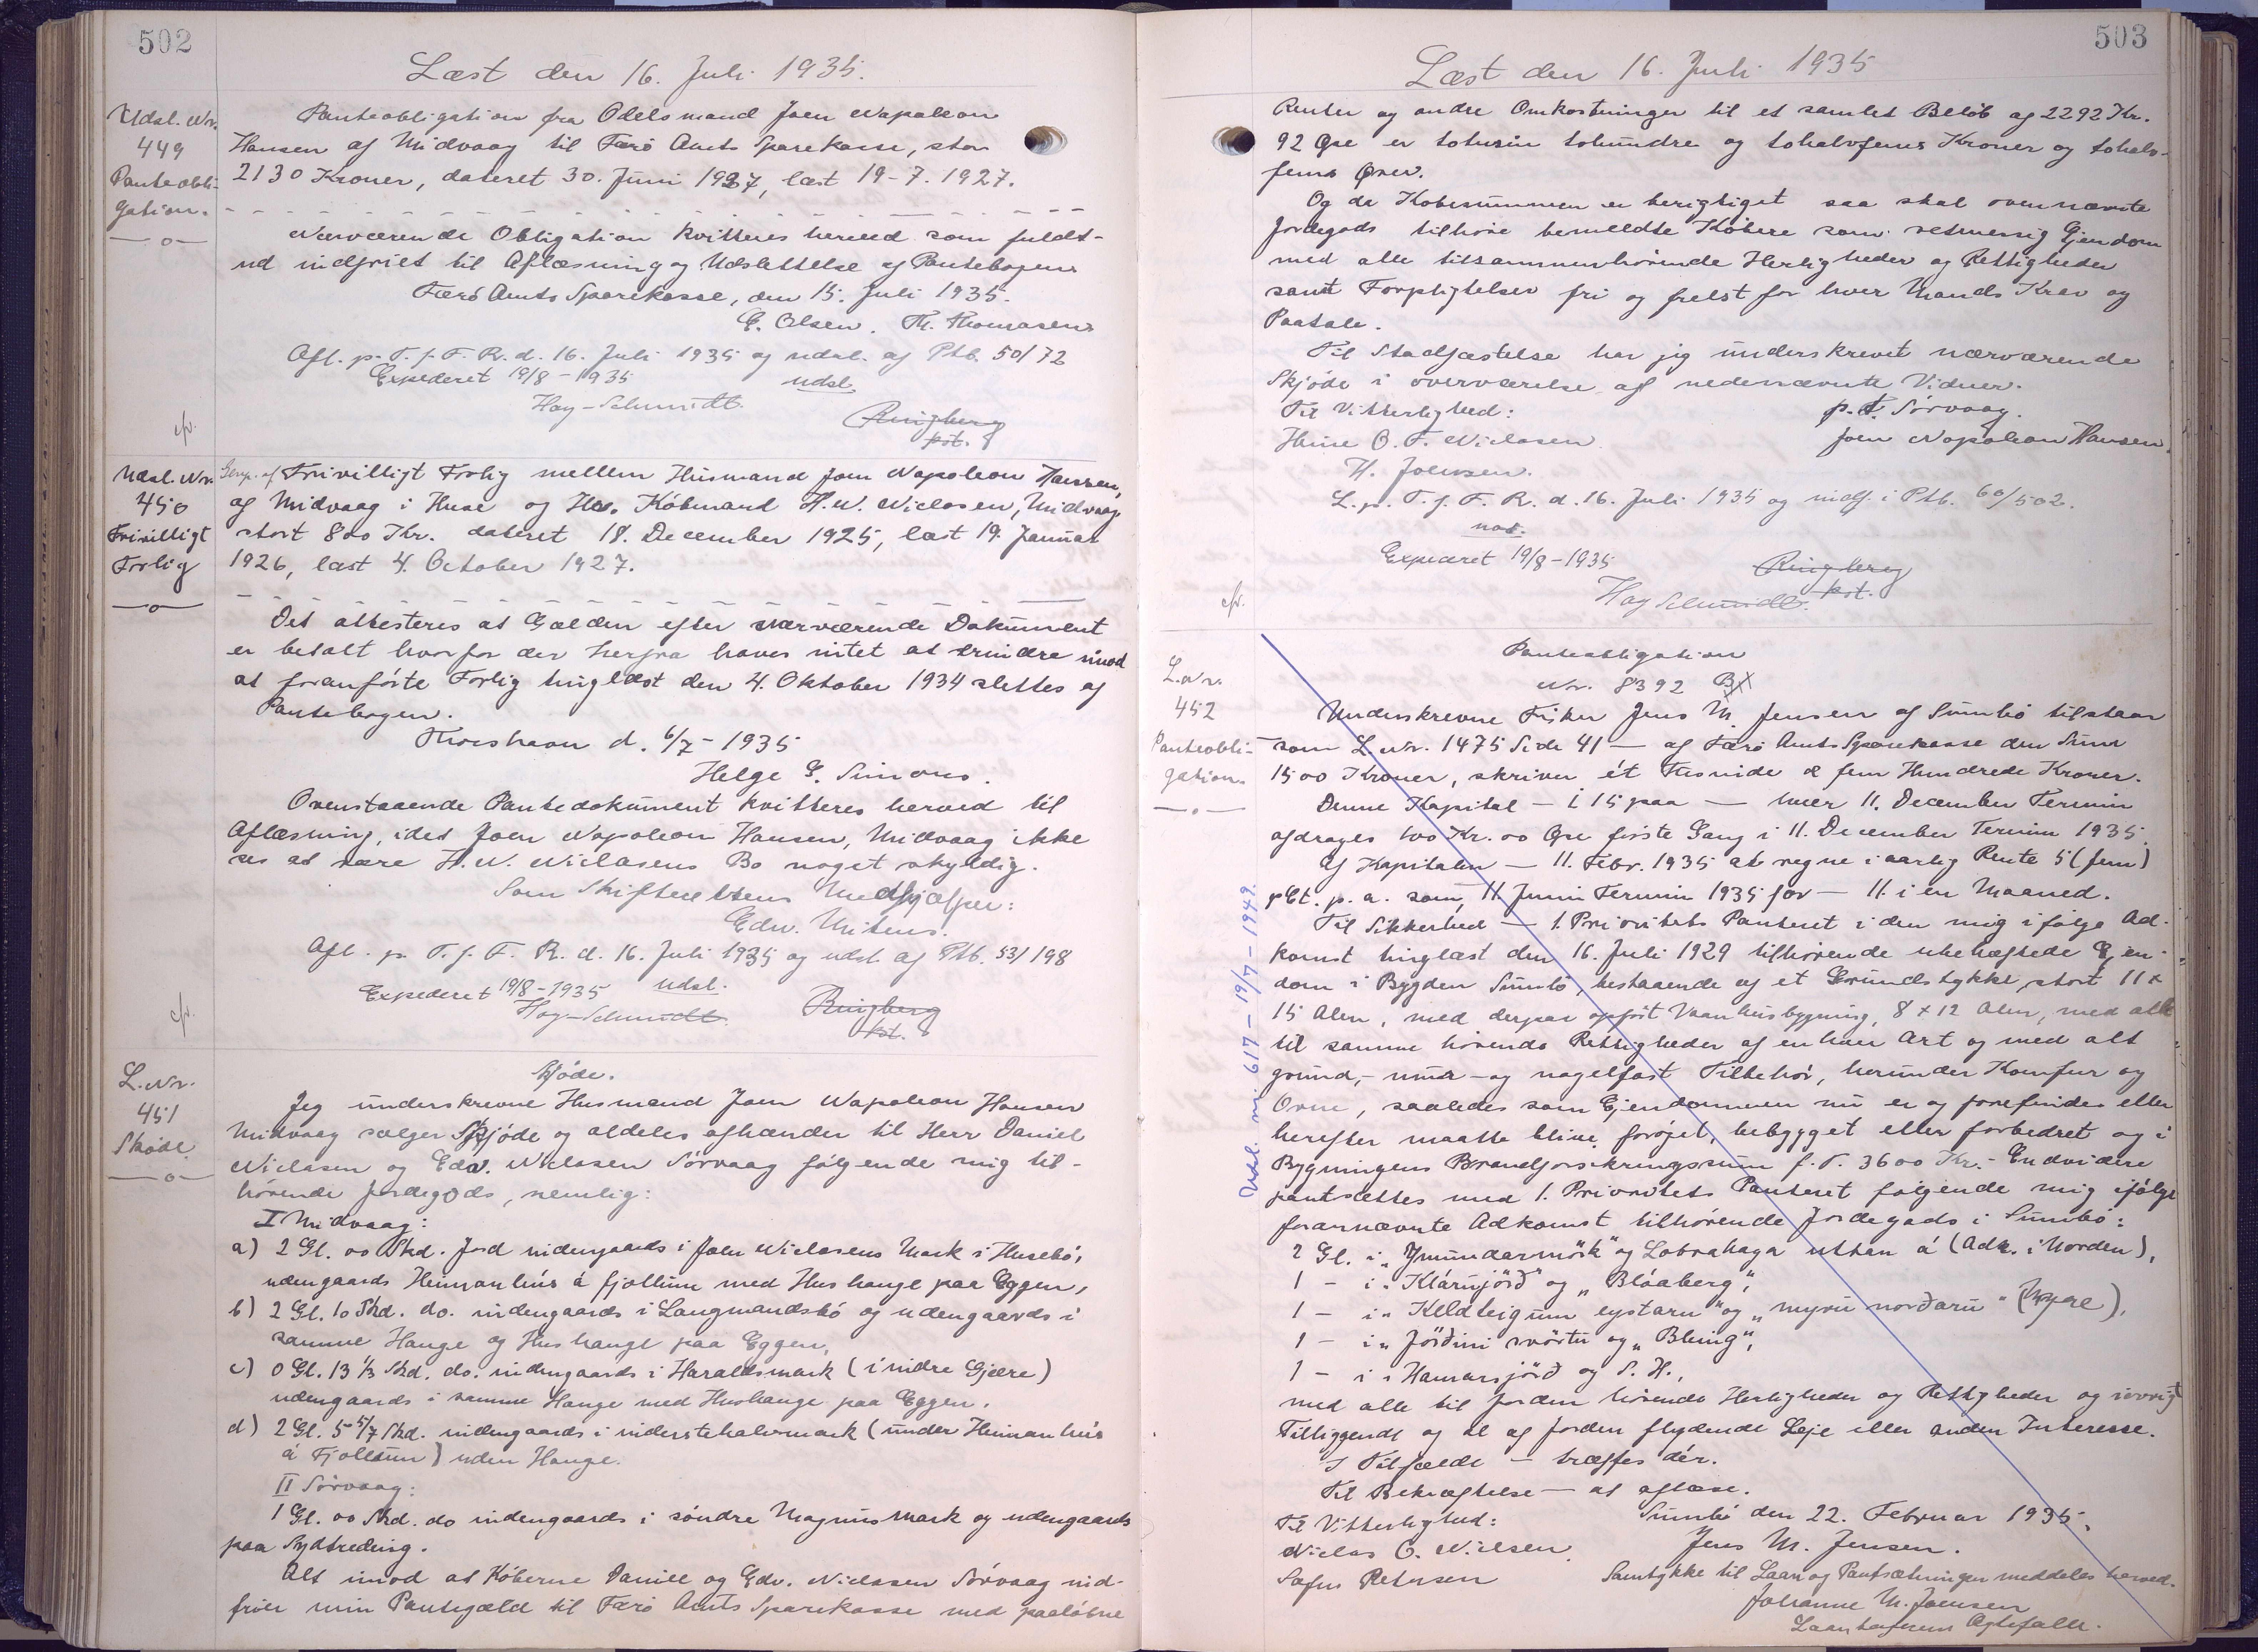 502
Læst den 16. Juli 1935.
Udsl. Nr.
449
Panteobli-
gation.
Panteobligation fra Odelsmand Joen Napoleon
Hansen af Midvaag til Færö Amts Sparekasse, stor
2130 Kroner, dateret 30. Juni 1927, læst 19-7. 1927.
Nærværende Obligation kvitteres herved som fuldt-
ud indfriet til Aflæsning og Udslettelse af Pantebogen.
Færö Amts Sparekasse, den 15. Juli 1935.
E. Olsen. Th. Thomasen
Afl. p. T. f. F. R. d. 16. Juli 1935 og udsl. af Ptb. 50/72
Expederet 19/8-1935 udsl.
Hoy-Schmidt.
Ringberg
kst.
cfr.
Udsl. Nr.
450
Frivilligt
Forlig
Genp. af Frivilligt Forlig mellem Husmand Joen Napoleon Hansen,
af Midvaag i Huse og Hr. Köbmand H. N. Niclasen, Midvaag
stort 800 Kr. dateret 18. December 1925, læst 19. Januar
1926, læst 4. October 1927.
Det attesteres at Gælden efter nærværende Dokument
er betalt hvorfor der herfra haves intet at erindre imod
at foranförte Forlig tinglæst den 4. Oktober 1934 slettes af
Pantebogen.
Thorshavn d. 6/7-1935
Helge G. Simons.
Ovenstaaende Pantedokument kvitteres herved til
Aflæsning, idet Joen Napoleon Hansen, Midvaag ikke
ses at være H. N. Niclasens Bo noget skyldig.
Som Skifterettens Medhjælper:
Edw. Mitens.
Afl. p. T. f. F. R. d. 16. Juli 1935 og udsl. af Ptb. 53/198
Expederet 19/8-1935 udsl.
Hoy-Schmidt.
Ringberg
kst.
cfr.
L. Nr.
451
Sköde
Skjöde.
Jeg underskrevne Husmand Joen Napoleon Hansen
Midvaag sælger Skjöde og aldeles afhænder til Herr Daniel
Niclasen og Edv. Niclasen Sörvaag fölgende mig til-
hörende Jordegods, nemlig:
I Midvaag:
a) 2 Gl. 00 Skd. Jord indengaards i Joen Niclasens Mark i Husebö,
udengaards Heimanhús á fjöllum med Hushauge paa Eggen,
b) 2 Gl. 10 Skd. do. indengaards i Langmandsbö og udengaards i
samme Hauge og Hushauge paa Eggen,
c) 0 Gl. 13 1/3 Skd. do. indengaards i Haraldsmark (i nidre Gjære)
udengaards i samme Hauge med Hushauge paa Eggen.
d) 2 Gl. 5 5/7 Skd. indengaards i niderstehalvmark (under Heimanhús
á Fjöllum) uden Hauge.
II Sörvaag:
1 Gl. 00 Skd. do indengaards i söndre Magnusmark og udengaards
paa Sydtreding.
Alt imod at Köberne Daniel og Edv. Niclasen Sörvaag ind-
frier min Pantegæld til Færö Amts Sparekasse med paalöbne
503
Læst den 16. Juli 1935
Renter og andre Omkostninger til et samlet Belöb af 2292 Kr.
92 Öre er totusin tohundre og tohalvfems Kroner og tohalv-
fems Ører.
Og da Köbesummen er berigtiget saa skal ovennævnte
Jordegods tilhöre bemeldte Köbere som retmessig Ejendom
med alle tilsammenhörende Herligheder og Rettigheder
samt Forpligtelser fri og frelst for hver Mands Krav og
Paatale.
Til Stadfæstelse har jeg underskrevet nærværende
Skjöde i overværelse af nedennævnte Vidner.
Til Vitterlighed:
p. t. Sörvaag.
O. F. Niclasen
Joen Napoleon Hansen.
H. Joensen.
L. p. T. f. F. R. d. 16. Juli 1935 og indf. i Ptb. 60/502.
not.
Expederet 19/8-1935
Ringberg
kst.
Hoy Schmidt.
cfr.
L. Nr.
452
Panteobli-
gation.
Panteobligation
Nr. 8392 B
Underskrevne Fisker Jens M. Jensen af Sumbö tilstaar
som L. Nr. 1475 Side 41 — af Færö Amts Sparekasse den Sum
1500 Kroner, skriver ét Tusinde & fem Hundrede Kroner.
Denne Kapital — i 15 paa — hver 11. December Termin
afdrages 100 Kr. 00 Öre förste Gang i 11. December Termin 1935.
Af Kapitalen — 11. Febr. 1935 at regne i aarlig Rente 5 (fem)
pCt. p. a. som 11 Juni Termin 1935 for — 11. i en Maaned.
Til Sikkerhed — 1. Prioritets Panteret i den mig ifölge Ad-
komst tinglæst den 16. Juli 1929 tilhörende ubehæftede Ejen-
dom i Bygden Sumbö, bestaaende af et Grundstykke, stort 11 x
15 Alen, med derpaa opfört Vaanhusbygning, 8 x 12 Alen, med alle
til samme hörende Rettigheder af enhver Art og med alt
grund,- mur- og nagelfast Tilbehör, herunder Komfur og
Ovne, saaledes som Ejendommen nu er og forefindes eller
herefter maatte blive foröget, bebygget eller forbedret og i
Bygningens Brandforsikringssum f. T. 3600 Kr.- Endvidere
pantsættes med 1. Prioritets Panteret fölgende mig ifölge
forannævnte Adkomst tilhörende Jordegods i Sumbö:
2 Gl. i "Ymundarmörk" og Lobrahaga uttan á (Adk. i Norden),
1 - i "Klárujörð" og "Bláaberg",
1 - i "Keldteigum eystaru" og "myru norðaru"
1 - i "Jörðini svörtu og "Bleing",
1 - i Hamarsjörð og S. H.,
med alle til Jorden hörende Herligheder og Rettigheder og iövrigt
Tilliggende og til af Jorden flydende Leje eller anden Interesse.
I Tilfælde — træffes dér.
Til Bekræftelse — at aflæse.
Til Vitterlighed:
Sumbö den 22. Februar 1935.
Niclas O. Nielsen
Jens M. Jensen.
Sofus Petersen
Samtykke til Laan og Pantsætningen meddeles herved.
Johanne M. Joensen
Laantagerens Ægtefælle.
Udsl. nr. 617 - 19/7 - 1949.